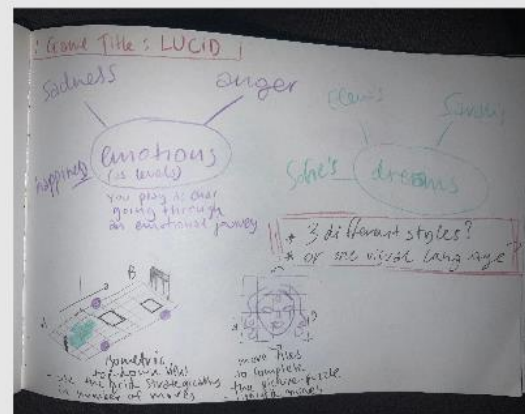 Game Title : LUCID
sadness
anger
happiness
emotions
(as levels)
you play as char
going through
an emotional journey
Sofie's
dreams
* 3 different styles?
* or one visual language
A
B
Isometric
top-down view
- use the grid strategically
in number of moves
move tiles
to complete
the picture-puzzle